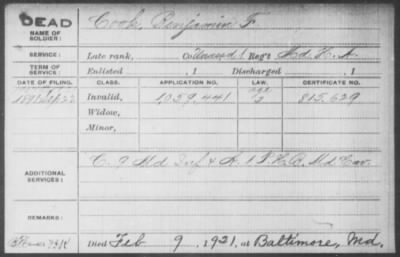 DEAD
NAME OF SOLDIER:
Cook, Benjamin F.
SERVICE:
Late rank, Co. Unassd Reg't Md H. A.
TERM OF SERVICE:
Enlisted , 1 Discharged , 1
DATE OF FILING. CLASS. APPLICATION NO. LAW. CERTIFICATE NO.
1891 Sep 22 Invalid, 1059.441 815.629
Widow,
Minor,
ADDITIONAL SERVICES:
C. 9 Md Inf & A. 1 P.H.B. Md Cav.
REMARKS:
Died Feb 9, 1921, at Baltimore, Md.